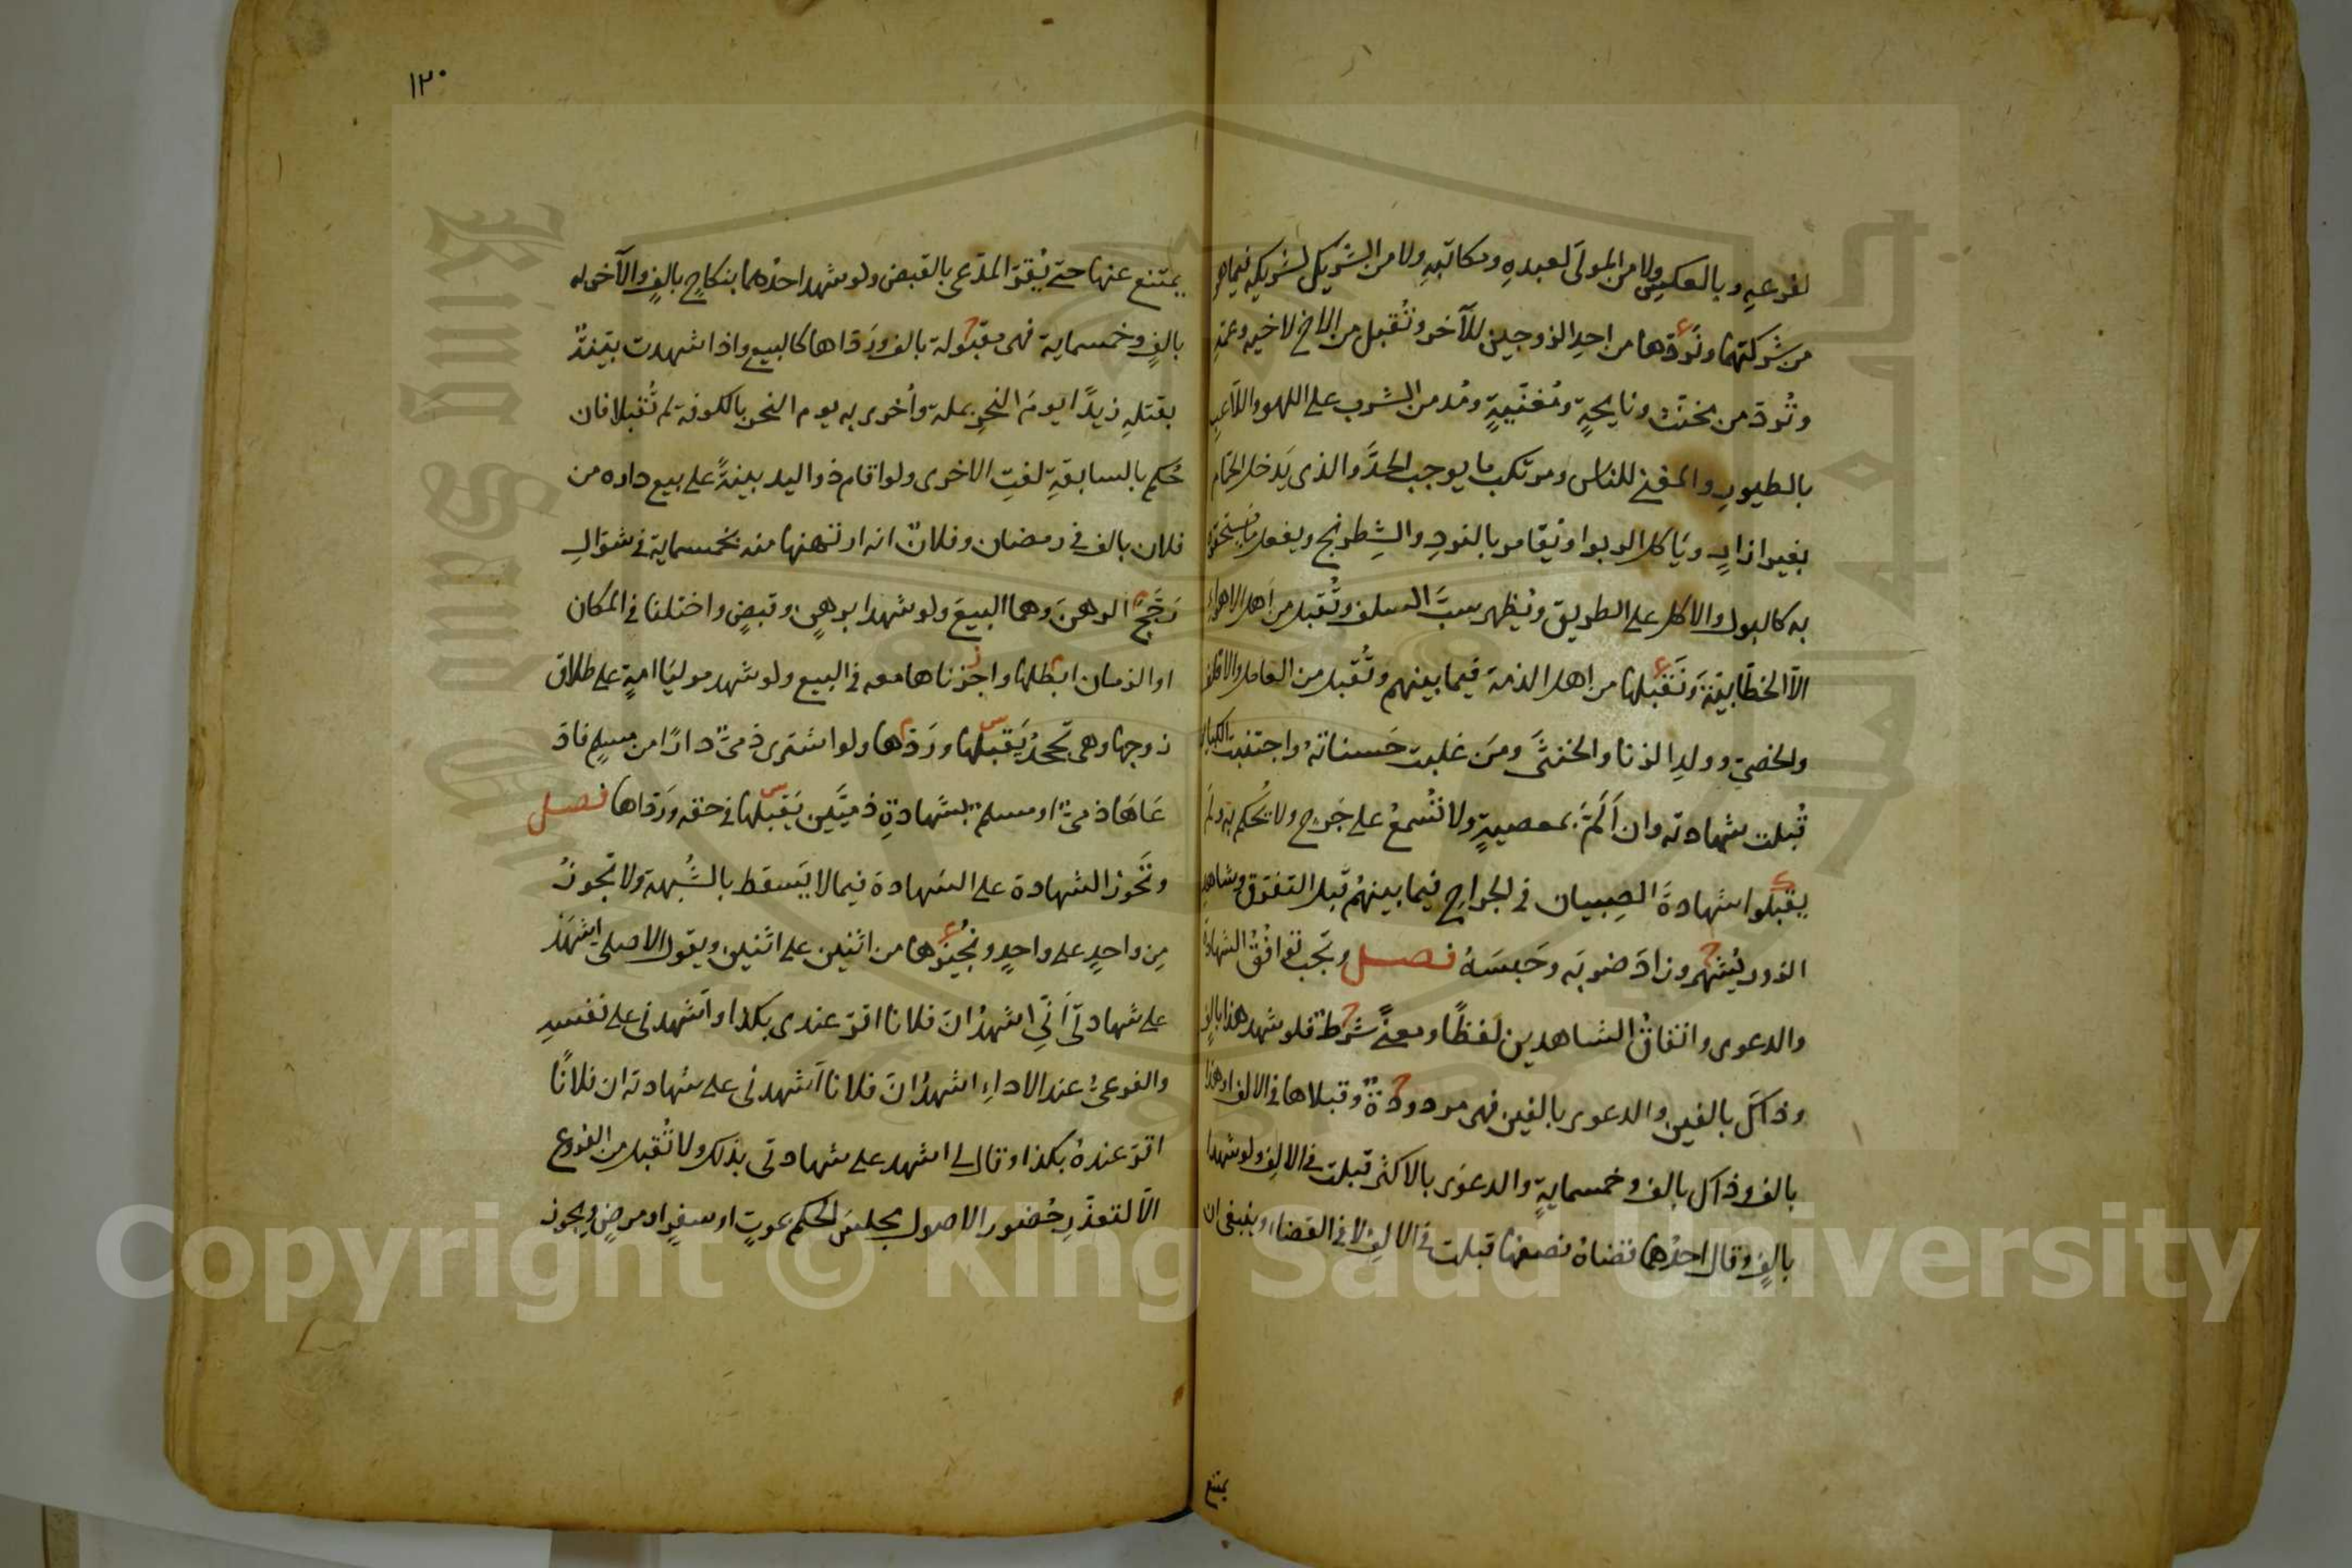 لفرعيه وبالعكس ولا من المولى لعبده ومكاتبه ولا من الشريك لشريكه فيما هو
من شركتهما ونردها من احد الزوجين للآخر وتُقبل من الاخ لاخيه وعمه
وتُرد من مخنث ونايحةٍ ومُغنيةٍ ومُدمن الشرب على اللهو واللاعب
بالطيور والمغني للناس ومرتكب ما يوجب الحدَّ والذي يَدخل الحمام
بغير ازارٍ وياكل الربوا او يقامر بالنرد والشِطرنج ويفعل ما يستحقر
به كالبول والاكل على الطريق ويُظهر سبَّ السلف وتُقبل من اهل الاهواء
الّا الخطّابية ونَقبلها من اهل الذمة فيما بينهم وتُقبل من العامل والاقلف
والخصيّ وولد الزنا والخنثى ومَن غلبت حَسناته واجتنبت الكبائر
قُبلت شهادته وان اَلَمَّ بمعصيةٍ ولا تُسمع على جَرحٍ ولا يُحكم به ولم
يقبلوا شهادةَ الصِبيان في الجراح فيما بينهُم قبل التفرق وشاهد
الزور يُشهر وزادَ ضربَه وحَبسَهُ فصل وتجب توافُقُ الشهادة
والدعوى واتفاقُ الشاهدين لَفظًا ومعنىً شرطٌ فلو شهد هذا بالفٍ
وذاكَ بالفين والدعوى بالفين فهى مردودةٌ وقبلاها في الالف او هذا
بالف وذاك بالف وخمسمايةٍ والدعوى بالاكثر قبلت في الالف ولو شهدا
بالفٍ وقال احدُهما قضاهُ نصفها قبلت في الالفِ لا في القضاء وينبغي ان
يمتنع
١٢٠
يمتنع عنها حتى يُقرّ المدّعي بالقبض ولو شهد احدُهما بنكاحٍ بالفٍ والآخر له
بالفٍ وخمسماية فهى مقبولة بالف ورَدّاها كالبيع واذا شهدت بيّنةٌ
بقتله زيدًا يومَ النحرِ بمكة وأخرى به يوم النحر بالكوفة لم تُقبلا فان
حُكم بالسابقةِ لغتِ الاخرى ولو اقام ذو اليد بينةً على بيع داره من
فلان بالف في رمضان وفلانٌ انه ارتهنها منه بخمسماية في شوّالٍ
رَجَّحَ الرهنَ وهما البيعَ ولو شهدا برهنٍ وقبضٍ واختلفا في المكان
او الزمان ابطلها واجزناها معه في البيع ولو شهد موليَا امةٍ على طلاق
زوجها وهى تجحدُ يَقبلها ورَدّها ولو اشترى ذميٌّ دارًا من مسلمٍ فادّ
عاها ذميٌّ او مسلمٌ بشهادةِ ذميَّين يَقبلها في حقه ورَدّاها فصل
وتَجُوز الشهادة على الشهادة فيما لا يَسقط بالشُبهة ولا تجوزُ
مِن واحدٍ على واحدٍ ونُجيزها من اثنين على اثنين ويقول الاصل اِشهَد
على شهادتي اَنّي اشهدُ انّ فلانا اقرّ عندي بكذا واَشهدني على نفسه
والفرعىُّ عند الاداءِ اشهدُ انّ فلانا اَشهدني على شهادته ان فلانًا
اقرّ عندهُ بكذا وقال لي اشهد على شهادتي بذلك ولا تُقبل من الفروع
الّا لتعذّرِ حُضور الاصول مجلسَ الحكم بموتٍ او سفرٍ او مرضٍ ويجوز
Copyright © King Saud University